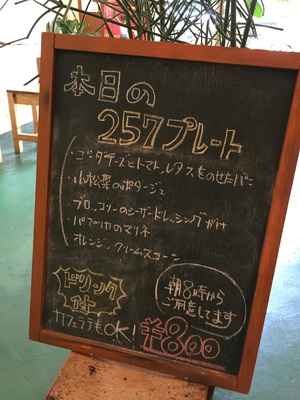 本日の
257プレート
・ゴーダチーズとトマト、レタスをのせたパニーニ
・小松菜のポタージュ
・ブロッコリーのシーザードレッシングがけ
・パプリカのマリネ
・オレンジクリームスコーン
ドリンク付
カフェラテもOK!
朝8時から
ご用意してます
¥800